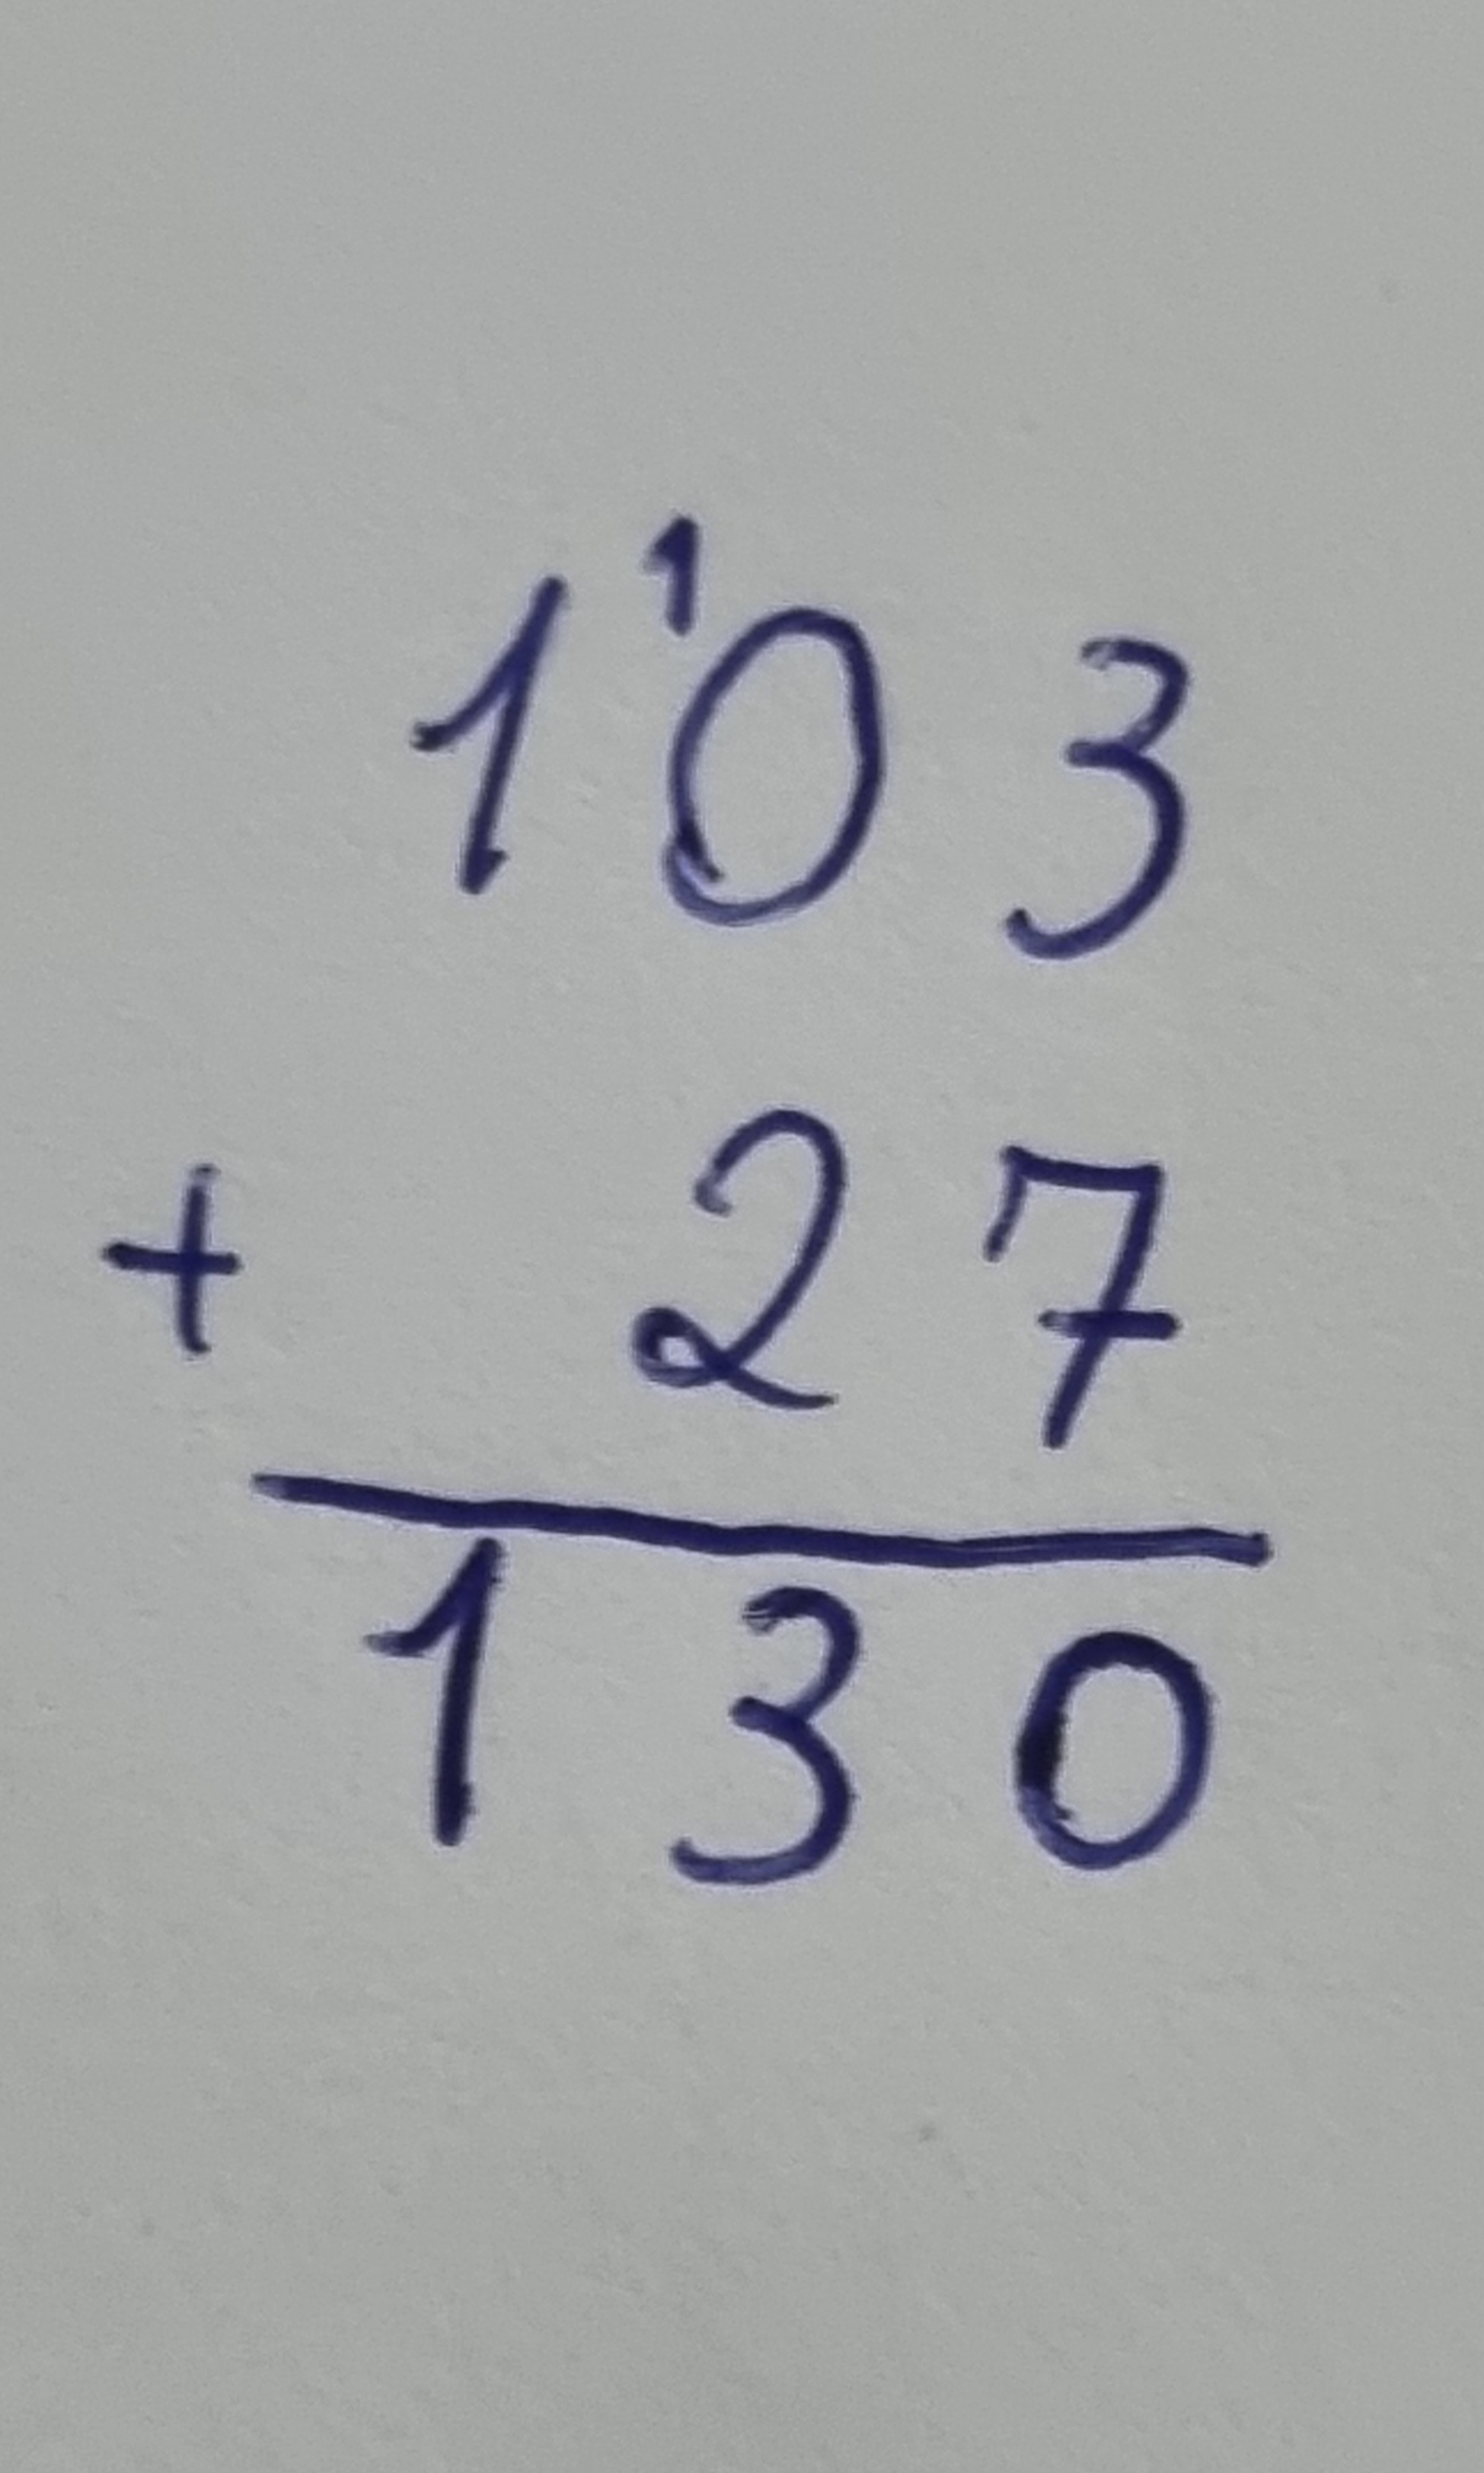 1
103
+ 27
130